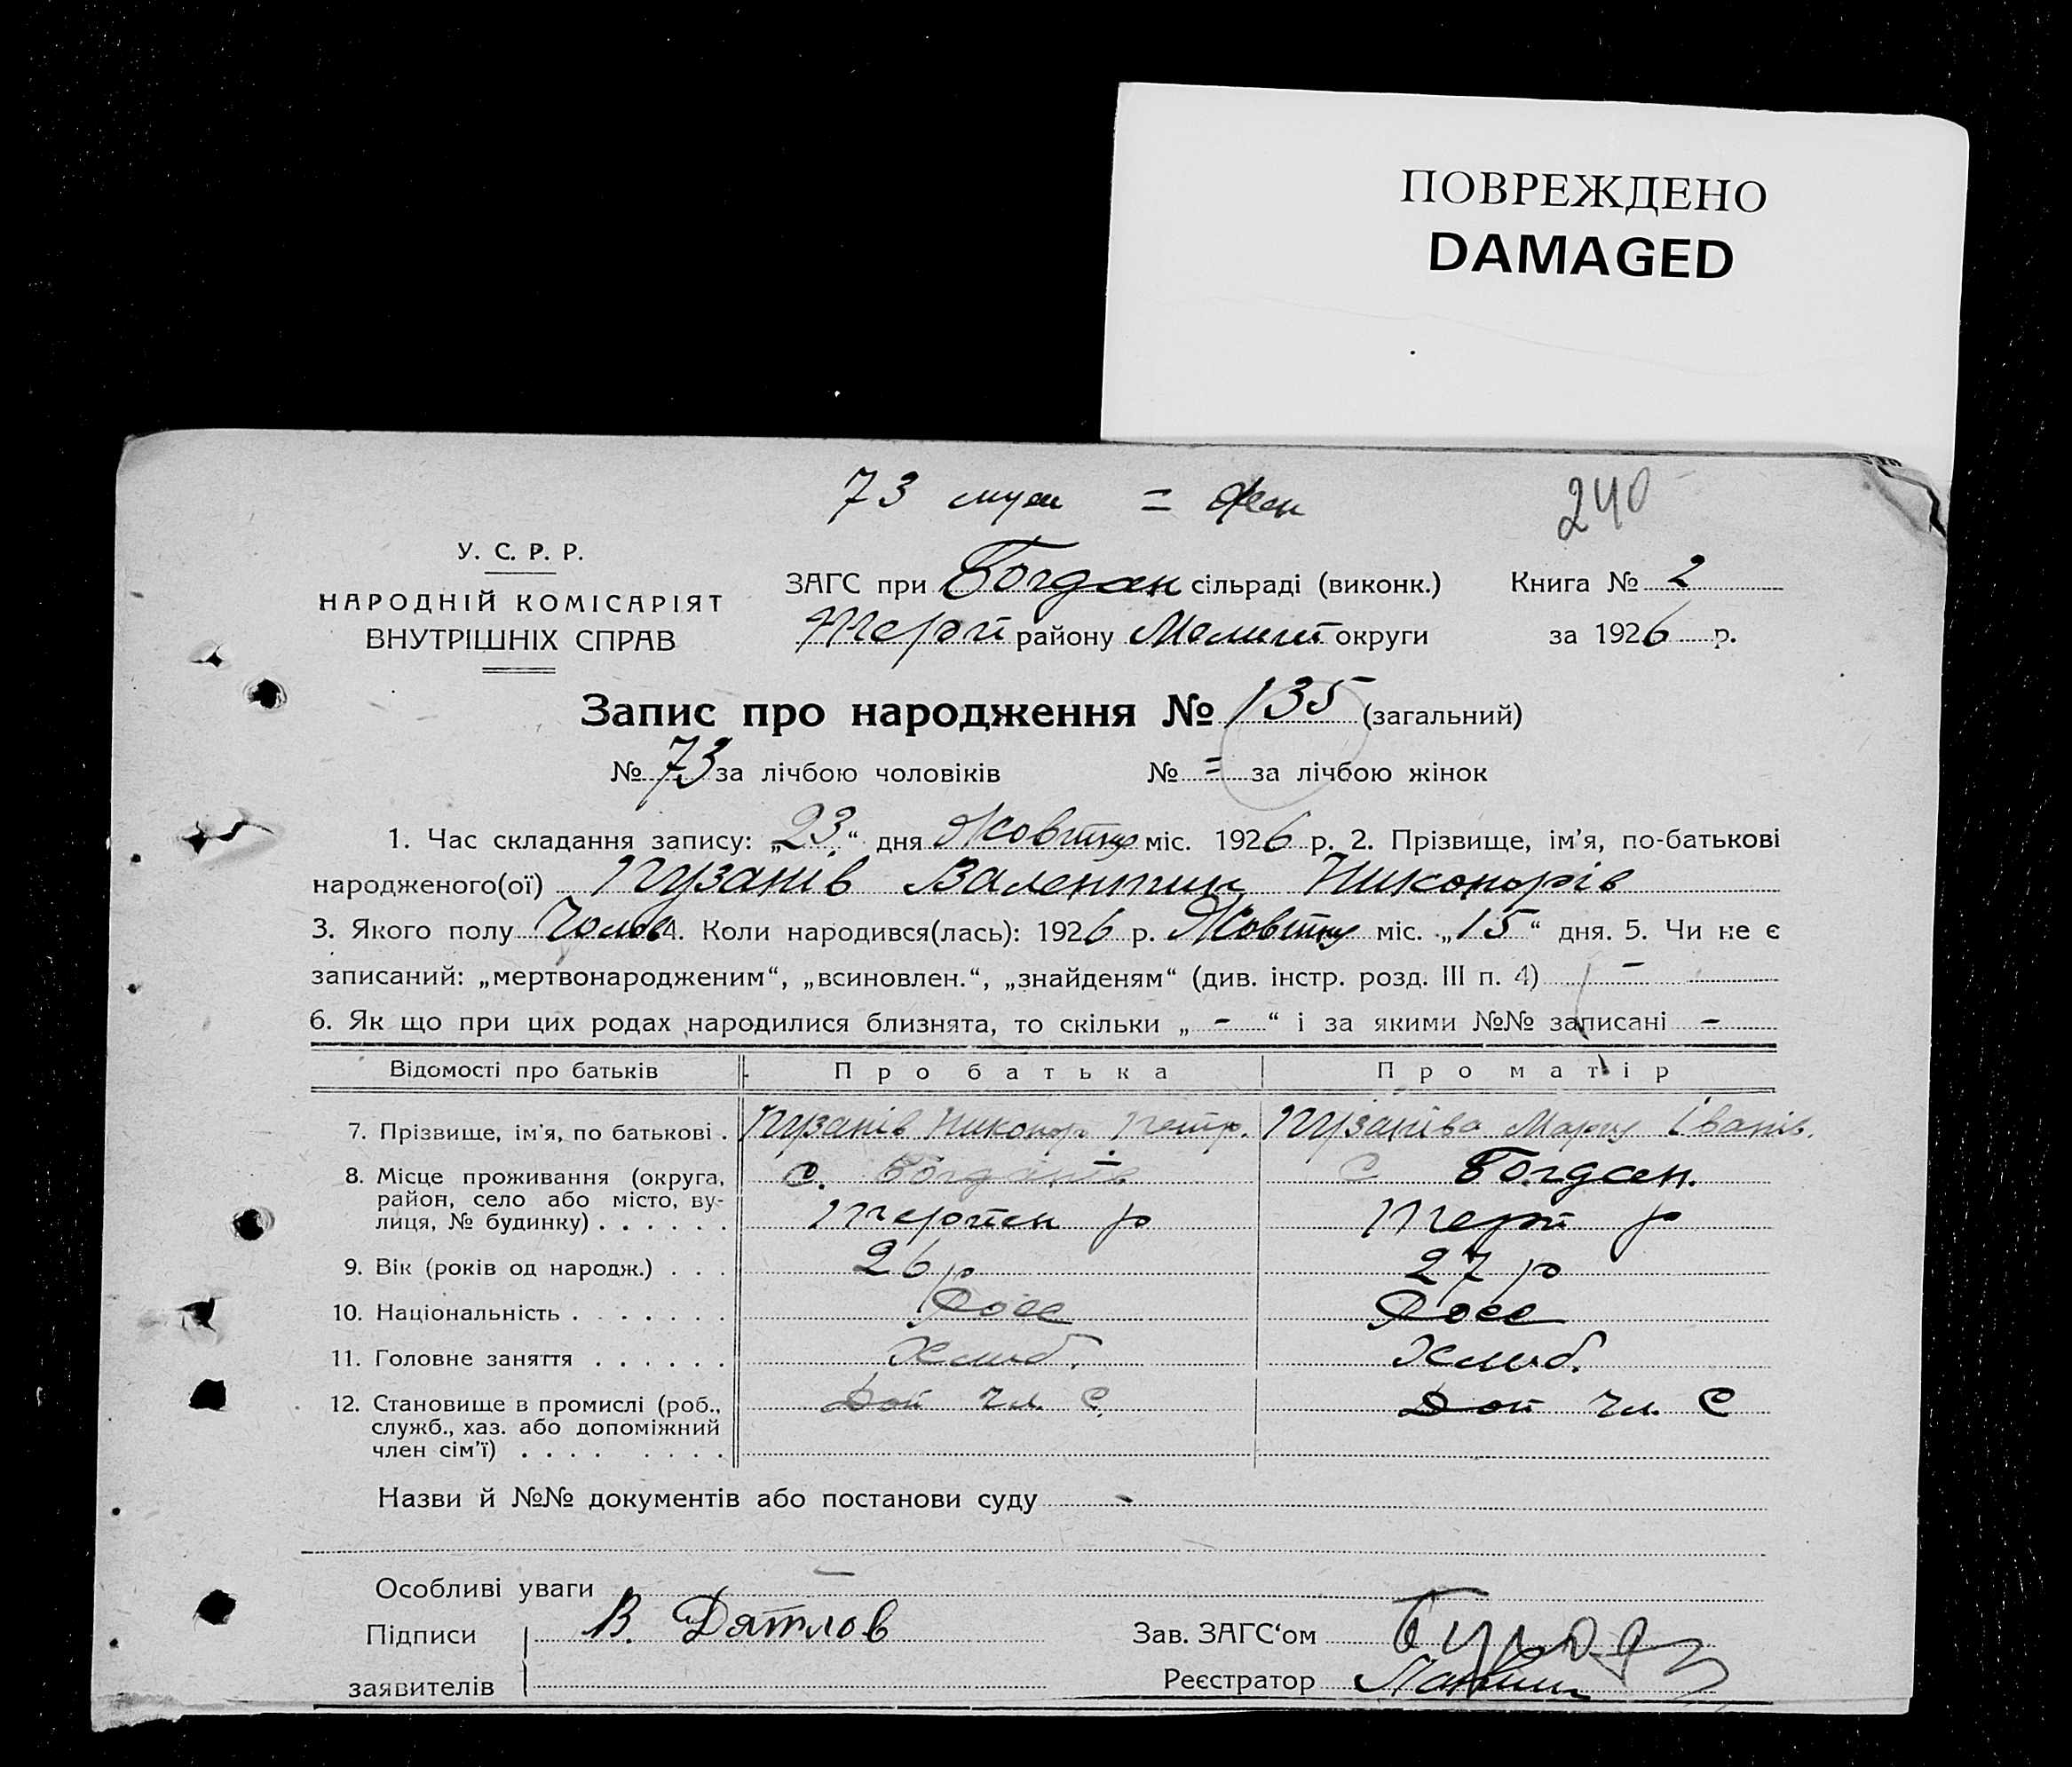 ПОВРЕЖДЕНО
DAMAGED
73 муж = жен 240
У. С. Р. Р.
НАРОДНІЙ КОМІСАРІЯТ
ВНУТРІШНІХ СПРАВ
ЗАГС при Богдан сільраді (виконк.) Книга № 2
Терп району Меліт округи за 1926 р.
Запис про народження № 135 (загальний)
№ 73 за лічбою чоловіків № = за лічбою жінок
1. Час складання запису: „23“ дня Жовтня міс. 1926 р. 2. Прізвище, ім’я, по-батькові
народженого(ої) Пузанів Валентин Никонорів
3. Якого полу Чолов 4. Коли народився(лась): 1926 р. Жовтня міс. „15“ дня. 5. Чи не є
записаний: „мертвонародженим“, „всиновлен.“, „знайденям“ (див. інстр. розд. III п. 4) -
6. Як що при цих родах народилися близнята, то скільки „ - “ і за якими №№ записані -
Відомості про батьків Про батька Про матір
7. Прізвище, ім’я, по батькові . Пузанів Никонор Петр. Пузанīва Марія Іванів.
8. Місце проживання (округа, с. Богданів с Богдан.
район, село або місто, ву-
лиця, № будинку) . . . . . . Терпен р Терп р
9. Вік (років од народж.) . . . 26 р 27 р
10. Національність . . . . . . . Росс Росс
11. Головне заняття . . . . . . Хліб. Хліб.
12. Становище в промислі (роб., Доп чл. С. Доп чл. С
служб., хаз. або допоміжний
член сім’ї) . . . . . . . .
Назви й №№ документів або постанови суду -
Особливі уваги —
Підписи В. Дятлов Зав. ЗАГС‘ом
заявителів Реєстратор